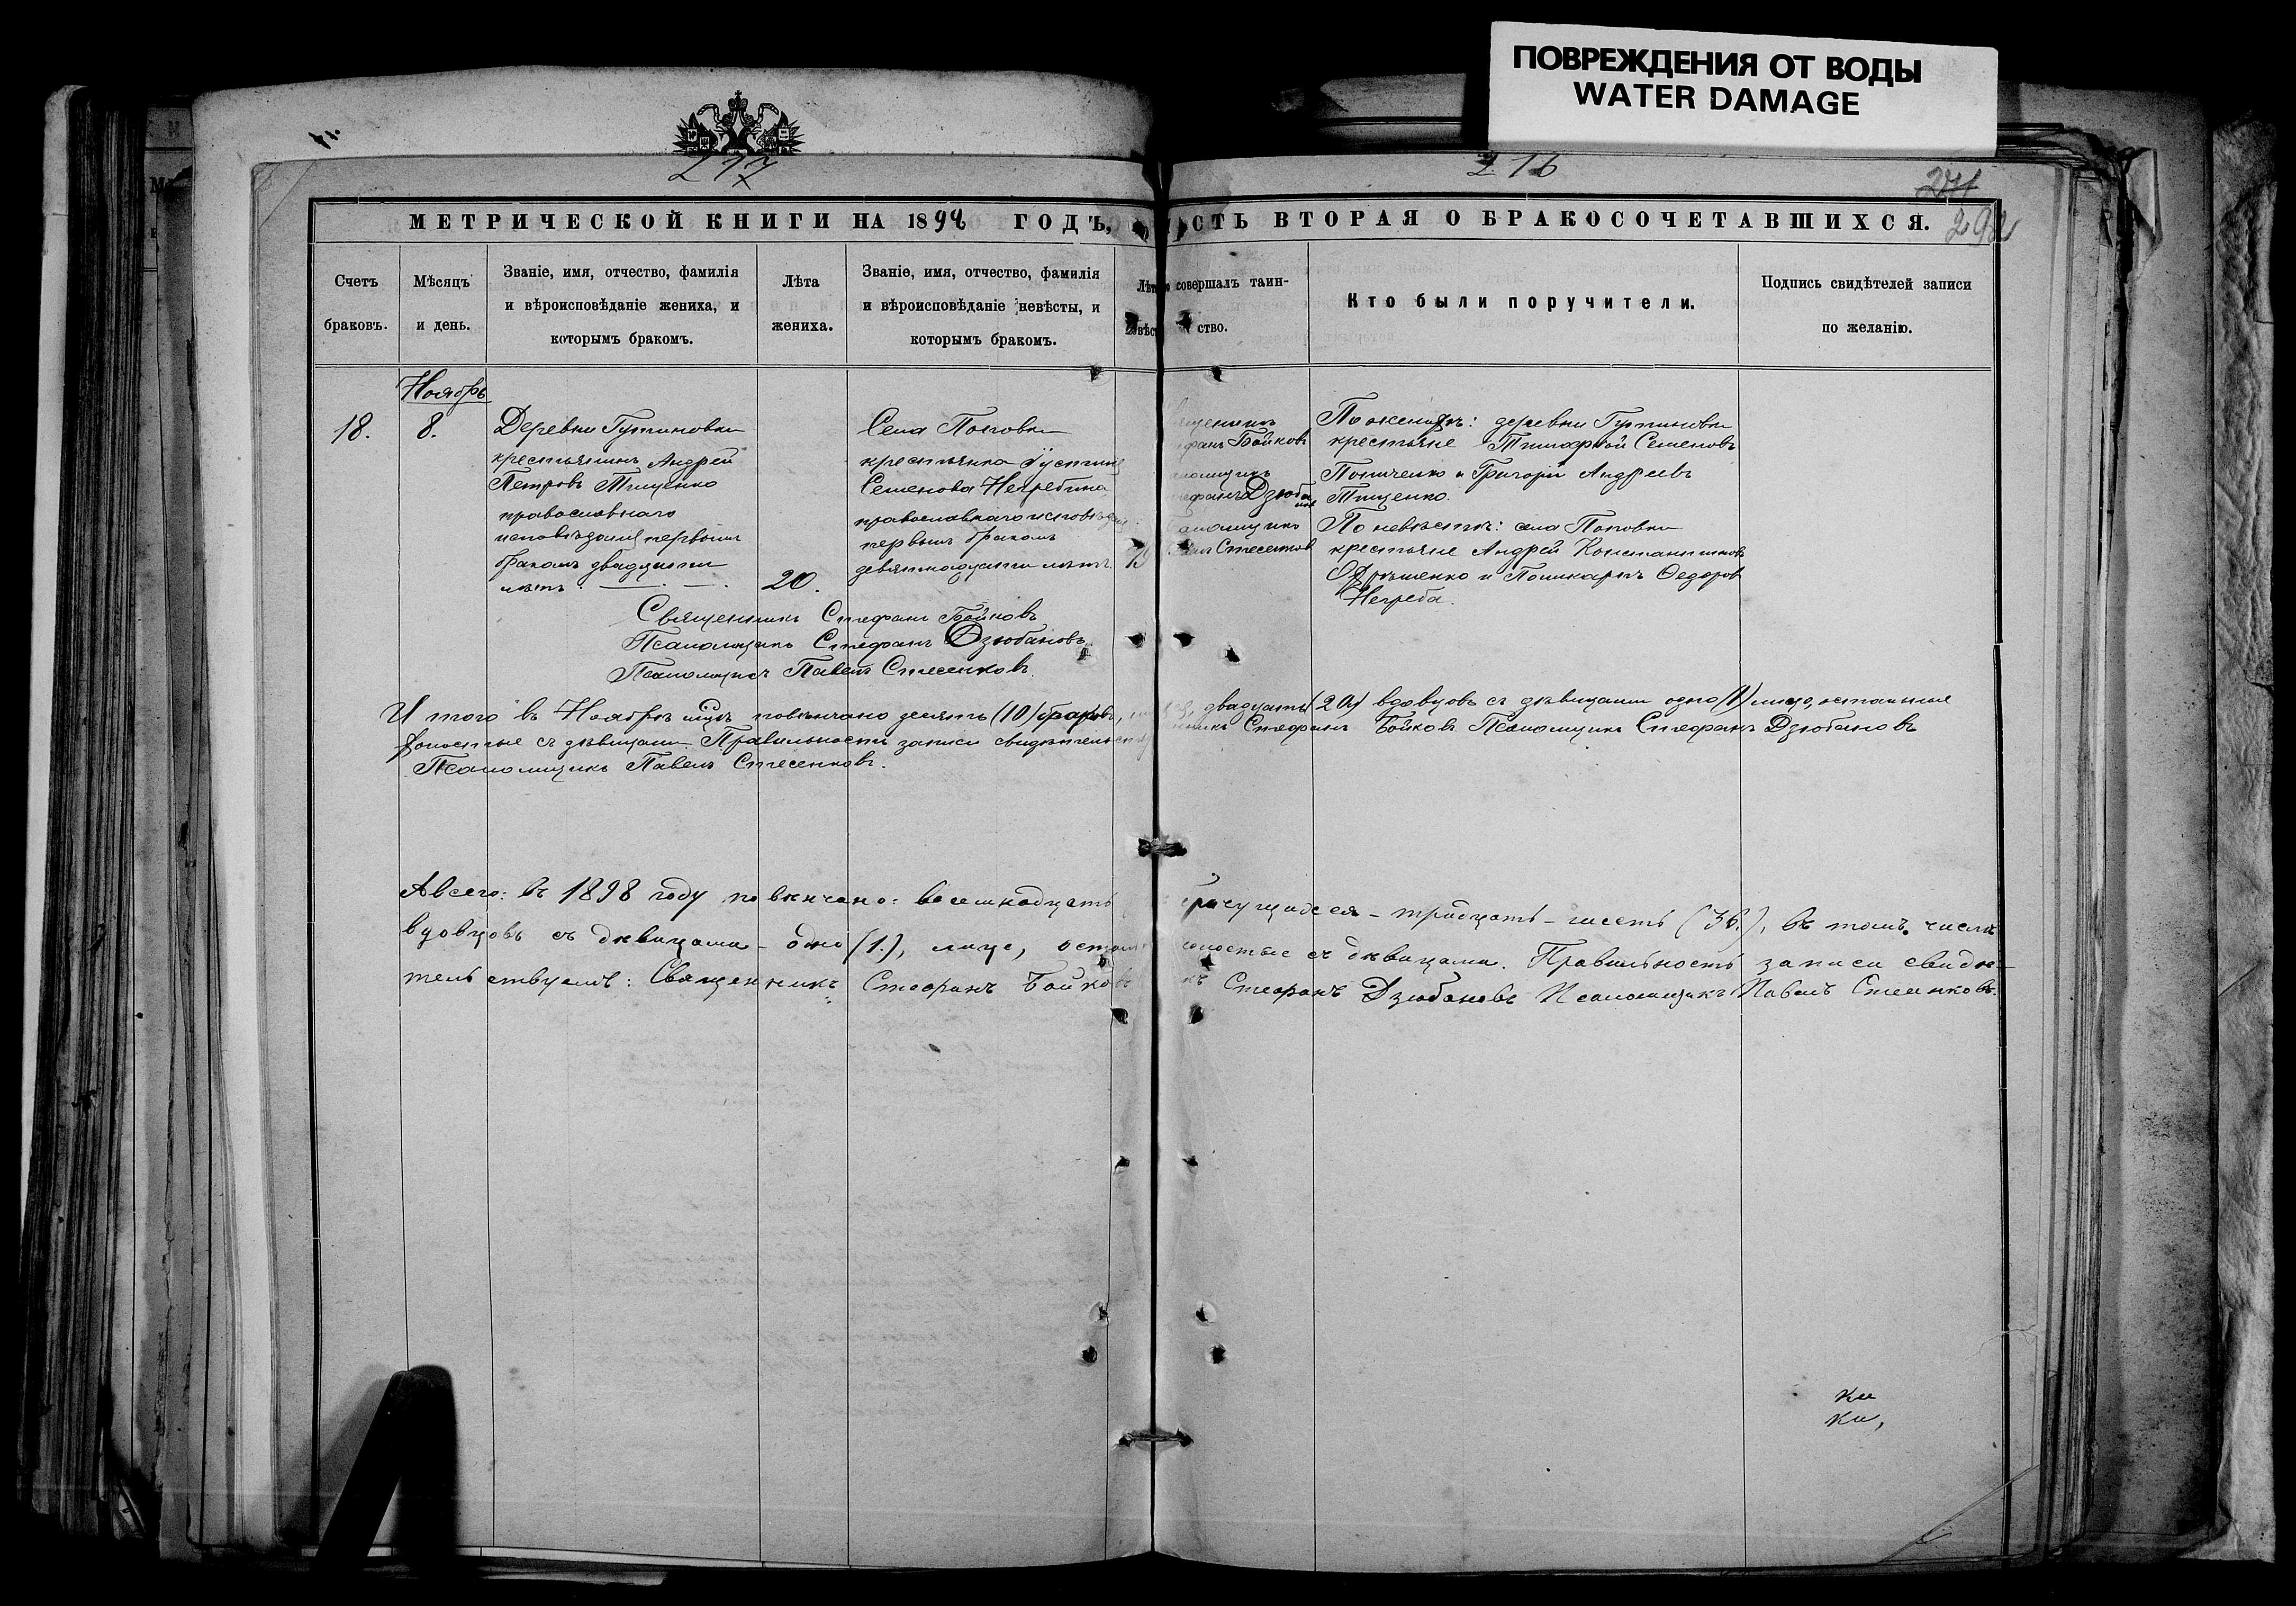 ПОВРЕЖДЕНИЯ ОТ ВОДЫ
WATER DAMAGE
217
216
271
292
МЕТРИЧЕСКОЙ КНИГИ НА 1898 ГОДЪ,
СТЬ ВТОРАЯ О БРАКОСОЧЕТАВШИХСЯ.
Счетъ
браковъ.
Мѣсяцъ
и день.
Званіе, имя, отчество, фамилія
и вѣроисповѣданіе жениха, и
которымъ бракомъ.
Лѣта
жениха.
Званіе, имя, отчество, фамилія
и вѣроисповѣданіе невѣсты, и
которымъ бракомъ.
Лѣт
совершалъ таин-
ство.
Кто были поручители.
Подпись свидѣтелей записи
по желанію.
Ноябрь
18.
8.
Деревни Гутиновки
крестьянинъ Андрей
Петровъ Тищенко
православнаго
исповѣданія первымъ
бракомъ двадцати
лѣтъ.
20.
Села Поповки
крестьянка Іустинія
Семенова Негребина
православнаго исповѣдан
первымъ бракомъ
девятнадцати лѣтъ.
19
щенникъ
фанъ Бойковъ
ломщикъ
ефанъ Дзюба
новъ
аломщикъ
Стесенков
По женихѣ: деревни Гутиновки
крестьяне Семеновъ
и Григорій Андреевъ
Тищенко.
По невѣстѣ: села Поповки
крестьяне Андрей Константиновъ
и Поликарпъ Ѳедоров
Негреба.
Священникъ Стефанъ Бойковъ
Псаломщикъ Стефанъ Дзюбановъ
Псаломщикъ Павелъ Стесенковъ.
И того въ Ноябрѣ мцѣ повѣнчано десять (10) браковъ,
двадцать (20) вдовцовъ съ дѣвицами одно (1) лице, остальные
холостые съ дѣвицами Правильность записи свидѣтельств
Стефанъ Бойковъ Псаломщикъ Стефанъ Дзюбановъ
Псаломщикъ Павелъ Стесенковъ.
А всего: въ 1898 году повѣнчано: восемнадцать
брачущихся - тридцать - шесть (36.), въ томъ числѣ
вдовцовъ съ дѣвицами - одно (1.), лице, остал
холостые съ дѣвицами. Правильность записи свидѣ-
тельствуемъ: Священникъ Стефанъ Бойковъ
къ Стефанъ Дзюбановъ Псаломщикъ Павелъ Стесенковъ.
ки
ки,